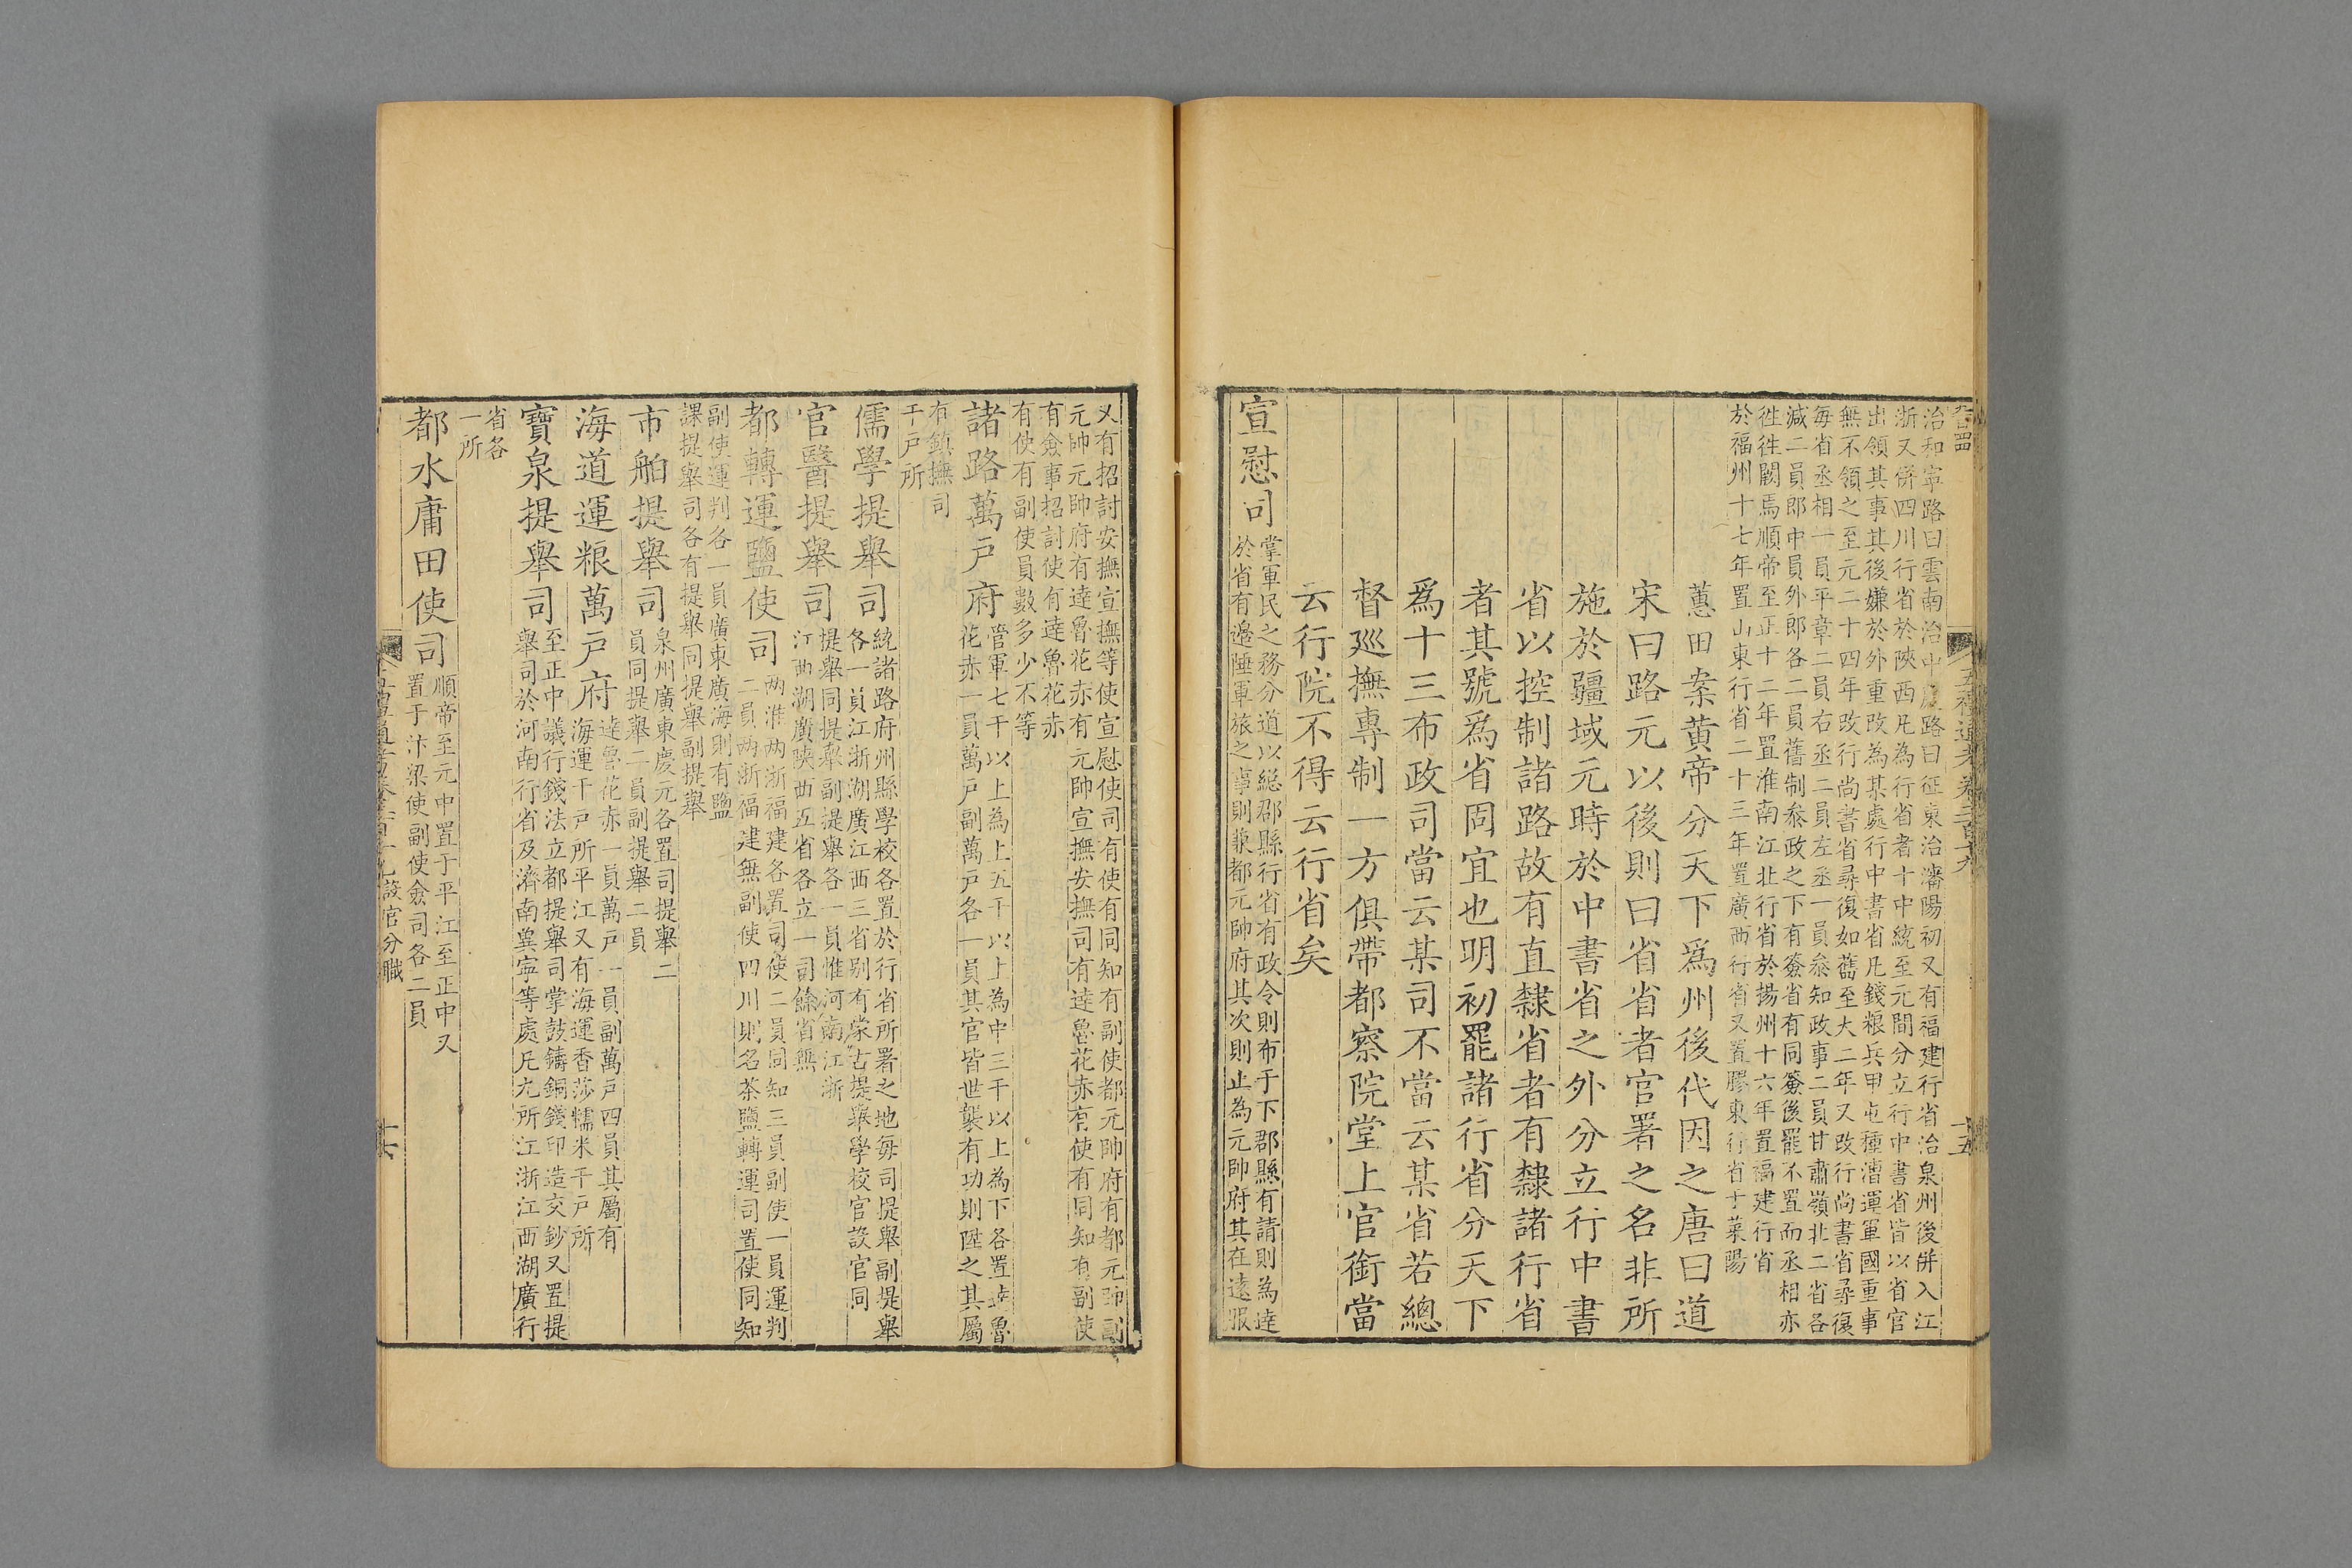 治和寧路曰雲南治中慶路曰征東治瀋陽初又有福建行省治泉州後併入江
浙又併四川行省於陝西凡為行省者十中統至元間分立行中書省皆以省官
出領其事其後嫌於外重改為某處行中書省凡錢粮兵甲屯種漕運軍國重事
無不領之至元二十四年改行尚書省尋復如舊至大二年又改行尚書省尋復
每省丞相一員平章二員右丞二員左丞一員叅知政事二員甘肅嶺北二省各
減二員郎中員外郎各二員舊制叅政之下有簽省有同簽後罷不置而丞相亦
徃徃闕焉順帝至正十二年置淮南江北行省於揚州十六年置福建行省
於福州十七年置山東行省二十三年置廣西行省又置膠東行省于萊陽
蕙田案黄帝分天下爲州後代因之唐曰道
宋曰路元以後則曰省省者官署之名非所
施於疆域元時於中書省之外分立行中書
省以控制諸路故有直隸省者有隸諸行省
者其號爲省固宜也明初罷諸行省分天下
爲十三布政司當云某司不當云某省若總
督巡撫專制一方俱帶都察院堂上官銜當
云行院不得云行省矣
宣慰司
掌軍民之務分道以總郡縣行省有政令則布于下郡縣有請則為達
於省有邊陲軍旅之事則兼都元帥府其次則止為元帥府其在遠服
又有招討安撫宣撫等使宣慰使司有使有同知有副使都元帥府有都元帥副
元帥元帥府有達魯花赤有元帥宣撫安撫司有達魯花赤有使有同知有副使
有僉事招討使有達魯花赤
有使有副使員數多少不等
諸路萬戶府
管軍七千以上為上五千以上為中三千以上為下各置達魯
花赤一員萬戶副萬戶各一員其官皆世襲有功則陞之其屬
有鎮撫司
千戶所
儒學提舉司
統諸路府州縣學校各置於行省所署之地每司提舉副提舉
各一員江浙湖廣江西三省别有蒙古提舉學校官設官同
官醫提舉司
提舉同提舉副提舉各一員惟河南江浙
江西湖廣陝西五省各立一司餘省無
都轉運鹽使司
两淮两浙福建各置司使二員同知二員副使一員運判
二員两浙福建無副使四川則名茶鹽轉運司置使同知
副使運判各一員廣東廣海則有鹽
課提舉司各有提舉同提舉副提舉
市舶提舉司
泉州廣東慶元各置司提舉二
員同提舉二員副提舉二員
海道運粮萬戶府
達魯花赤一員萬戶一員副萬戶四員其屬有
海運千戶所平江又有海運香莎糯米千戶所
寶泉提舉司
至正中議行錢法立都提舉司掌鼓鑄銅錢印造交鈔又置提
舉司於河南行省及濟南冀寧等處凡九所江浙江西湖廣行
省各
一所
都水庸田使司
順帝至元中置于平江至正中又
置于汴梁使副使僉司各二員
設官分職